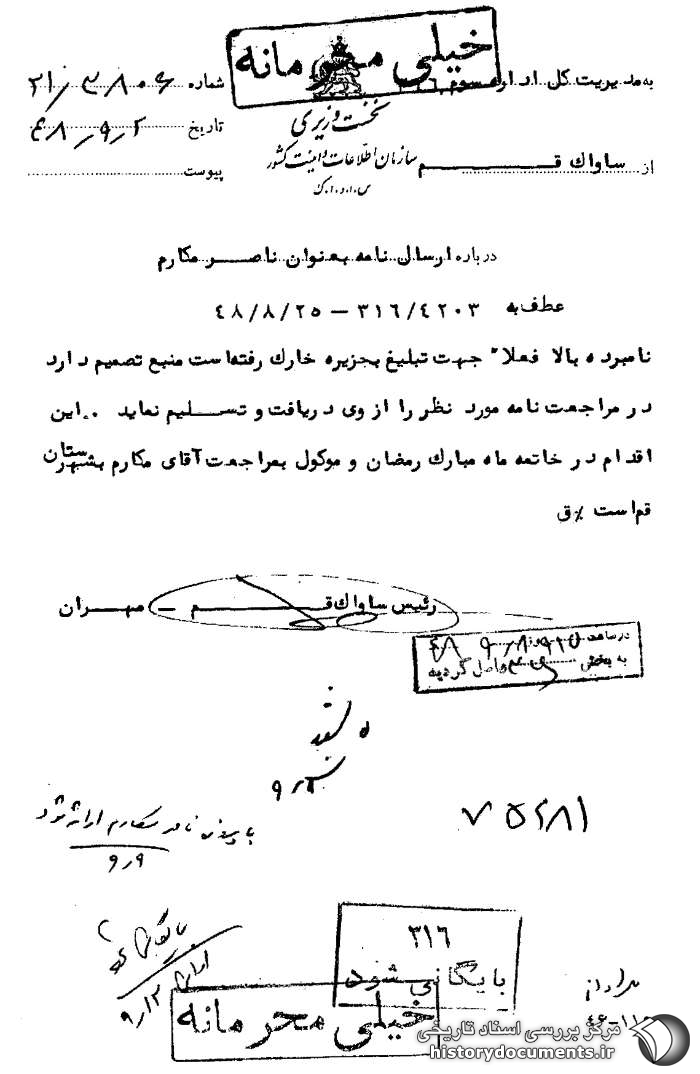 خیلی محرمانه
به مدیریت کل اداره سوم ۳۱٦
شماره ۲۱/۳۸۰۶
نخست وزیری
تاریخ ۴۸/۹/۲
سازمان اطلاعات و امنیت کشور
از ساواک قم
پیوست
س.ا.و.ا.ک
درباره ارسال نامه بعنوان ناصر مکارم
عطف به ۳۱٦/٤۲۰۳ – ٤۸/۸/۲۵
نامبرده بالا فعلاً جهت تبلیغ بجزیره خارک رفته‌است منبع تصمیم دارد
در مراجعت نامه مورد نظر را از وی دریافت و تسلیم نماید ۰ این
اقدام در خاتمه ماه مبارک رمضان و موکول بمراجعت آقای مکارم بشهرستان
قم‌است ٪ق
رئیس ساواک قم – مهران
در ساعت
به بخش واصل گردید
۹/۴
۷۵۲۸۱
با پرونده ناصر مکارم ارائه شود
۹/۹
بایگانی
۹/۱۲
۳۱٦
بایگانی شود
خیلی محرمانه
مرکز بررسی اسناد تاریخی
historydocuments.ir